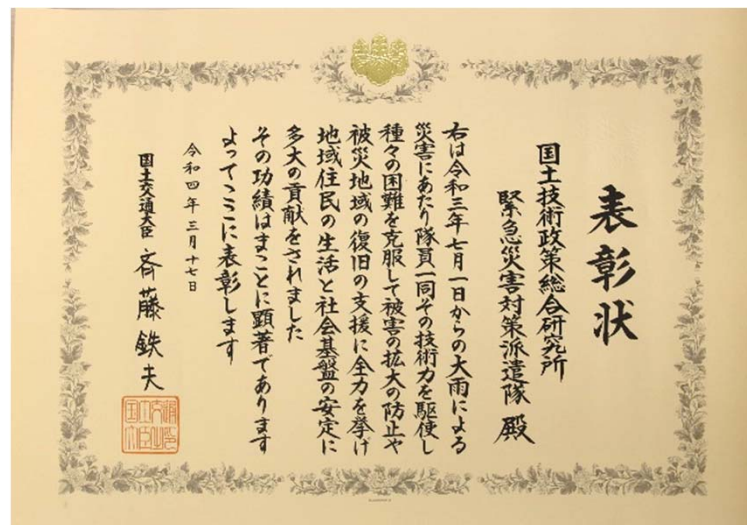 表彰状
国土技術政策総合研究所
緊急災害対策派遣隊 殿
右は令和三年七月一日からの大雨による
災害にあたり隊員一同その技術力を駆使し
種々の困難を克服して被害の拡大の防止や
被災地域の復旧の支援に全力を挙げ
地域住民の生活と社会基盤の安定に
多大の貢献をされました
その功績はまことに顕著であります
よってここに表彰します
令和四年三月十七日
国土交通大臣 斉藤鉄夫